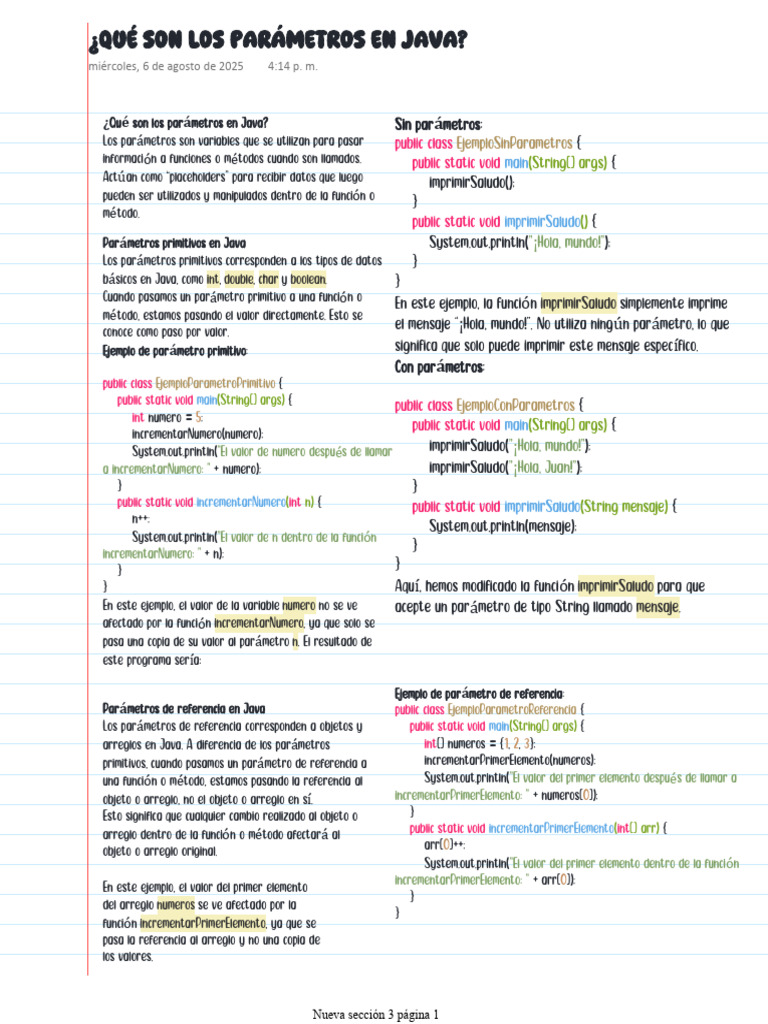 ¿QUÉ SON LOS PARÁMETROS EN JAVA?
miércoles, 6 de agosto de 2025 4:14 p. m.
¿Qué son los parámetros en Java?
Los parámetros son variables que se utilizan para pasar
información a funciones o métodos cuando son llamados.
Actúan como "placeholders" para recibir datos que luego
pueden ser utilizados y manipulados dentro de la función o
método.
Parámetros primitivos en Java
Los parámetros primitivos corresponden a los tipos de datos
básicos en Java, como int, double, char y boolean.
Cuando pasamos un parámetro primitivo a una función o
método, estamos pasando el valor directamente. Esto se
conoce como paso por valor.
Ejemplo de parámetro primitivo:
public class EjemploParametroPrimitivo {
public static void main(String[] args) {
int numero = 5;
incrementarNumero(numero);
System.out.println("El valor de numero después de llamar
a incrementarNumero: " + numero);
}
public static void incrementarNumero(int n) {
n++;
System.out.println("El valor de n dentro de la función
incrementarNumero: " + n);
}
}
En este ejemplo, el valor de la variable numero no se ve
afectado por la función incrementarNumero, ya que solo se
pasa una copia de su valor al parámetro n. El resultado de
este programa sería:
Parámetros de referencia en Java
Los parámetros de referencia corresponden a objetos y
arreglos en Java. A diferencia de los parámetros
primitivos, cuando pasamos un parámetro de referencia a
una función o método, estamos pasando la referencia al
objeto o arreglo, no el objeto o arreglo en sí.
Esto significa que cualquier cambio realizado al objeto o
arreglo dentro de la función o método afectará al
objeto o arreglo original.
En este ejemplo, el valor del primer elemento
del arreglo numeros se ve afectado por la
función incrementarPrimerElemento, ya que se
pasa la referencia al arreglo y no una copia de
los valores.
Sin parámetros:
public class EjemploSinParametros {
public static void main(String[] args) {
imprimirSaludo();
}
public static void imprimirSaludo() {
System.out.println("¡Hola, mundo!");
}
}
En este ejemplo, la función imprimirSaludo simplemente imprime
el mensaje "¡Hola, mundo!". No utiliza ningún parámetro, lo que
significa que solo puede imprimir este mensaje específico.
Con parámetros:
public class EjemploConParametros {
public static void main(String[] args) {
imprimirSaludo("¡Hola, mundo!");
imprimirSaludo("¡Hola, Juan!");
}
public static void imprimirSaludo(String mensaje) {
System.out.println(mensaje);
}
}
Aquí, hemos modificado la función imprimirSaludo para que
acepte un parámetro de tipo String llamado mensaje.
Ejemplo de parámetro de referencia:
public class EjemploParametroReferencia {
public static void main(String[] args) {
int[] numeros = {1, 2, 3};
incrementarPrimerElemento(numeros);
System.out.println("El valor del primer elemento después de llamar a
incrementarPrimerElemento: " + numeros[0]);
}
public static void incrementarPrimerElemento(int[] arr) {
arr[0]++;
System.out.println("El valor del primer elemento dentro de la función
incrementarPrimerElemento: " + arr[0]);
}
}
Nueva sección 3 página 1